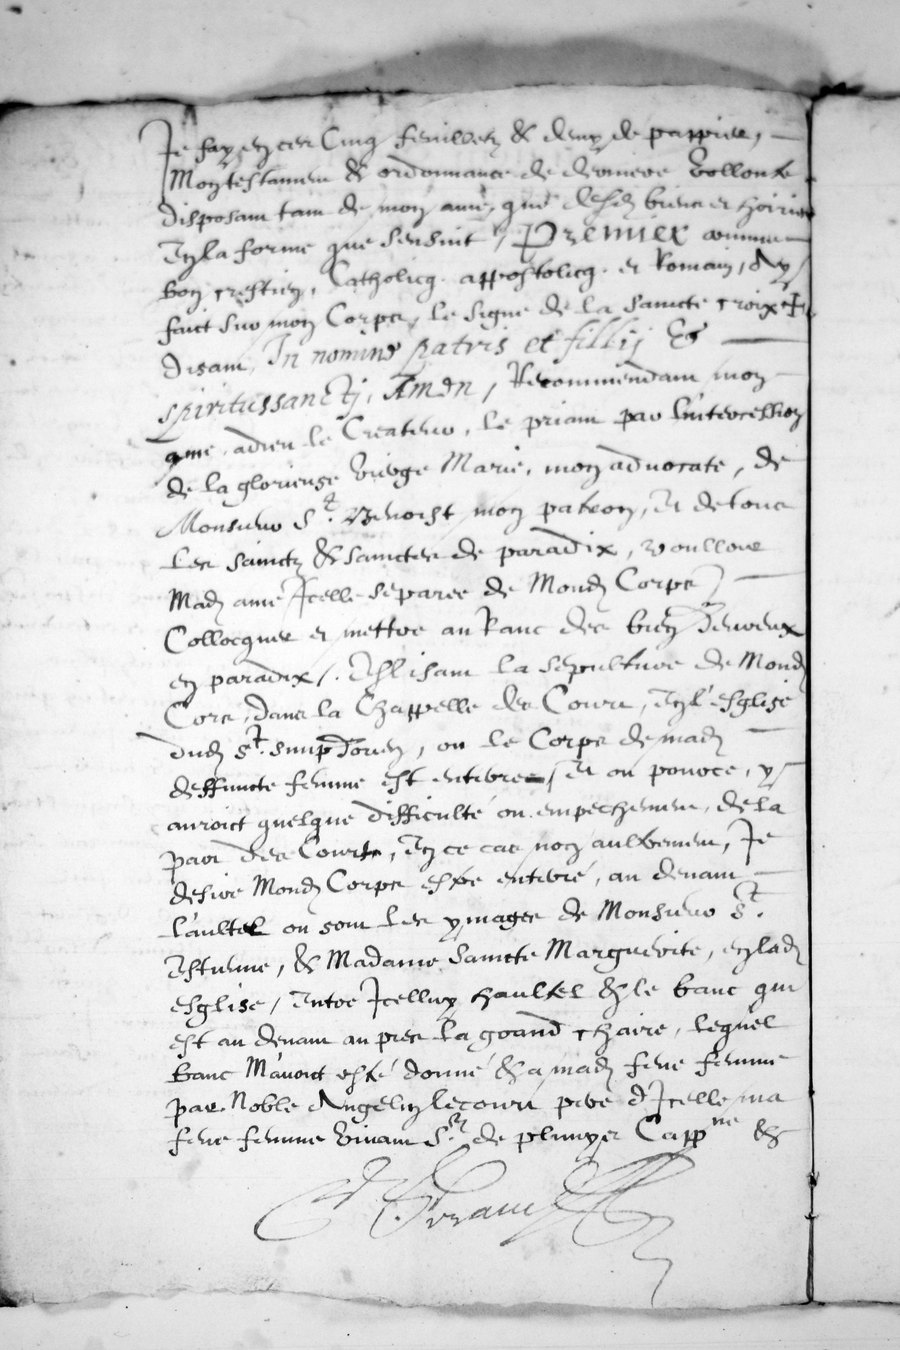 Je fay en cer Cinq feuilletz & demy de pappier,
Mon testament & ordonnance de derniere vollonte
disposant tant de mon ame, que desd. biens et hoirie
En la forme que sensuit, Premier comme
bon crestien, Catholicq. appostolicq. et Romain, Ay
faict sur mon Corps, le signe de la saincte croix +
disant, In nomine patris et fillij Et
spiritussanctj, Amen, Recommendant mon
ame, adieu le Createur, le priant par l'intercession
de la glorieuse vierge Marie, mon advocate, de
Monsieur St. Benoist mon patron, Et de tous
les sainctz & sainctes de paradix, voulloir
Mad. ame Icelle separee de Mond. Corps
Collocquer et mettre au Ranc des bien heureux
en paradix. Eslisant la sepulture de Mond.
Corps, dans la Chappelle des Court, En l'esglise
dud. St. simphorien, ou le Corps de mad.
deffuncte femme est enterre, Et ou pource, y
auroict quelque difficulté ou empechement, de la
part des Court, En ce cas non aultrement, Je
desire Mond. Corps estre enterré, au devant
l'aultel ou sont les ymages de Monsieur St.
Estienne, & Madame saincte Marguerite, en lad.
esglise, Entre Icelluy haultel & le banc qui
est au devant au pres la grand chaire, lequel
banc M'avoict esté donné & a mad. feue femme
par Noble Angelin lecourt pere d'Icelle ma
feue femme vivant Sr. de pluvyer Cappne &